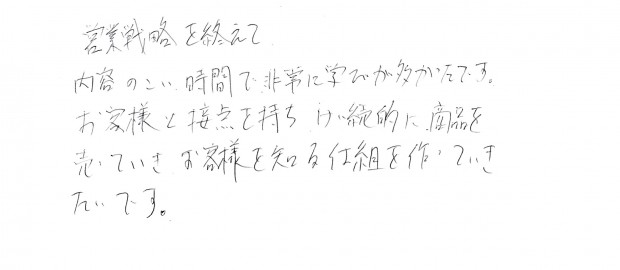 営業戦略を終えて
内容のこい時間で非常に学びが多かたです。
お客様と接点を持ち けい続的に商品を
売っていき お客様を知る仕組を作っていき
たいです。